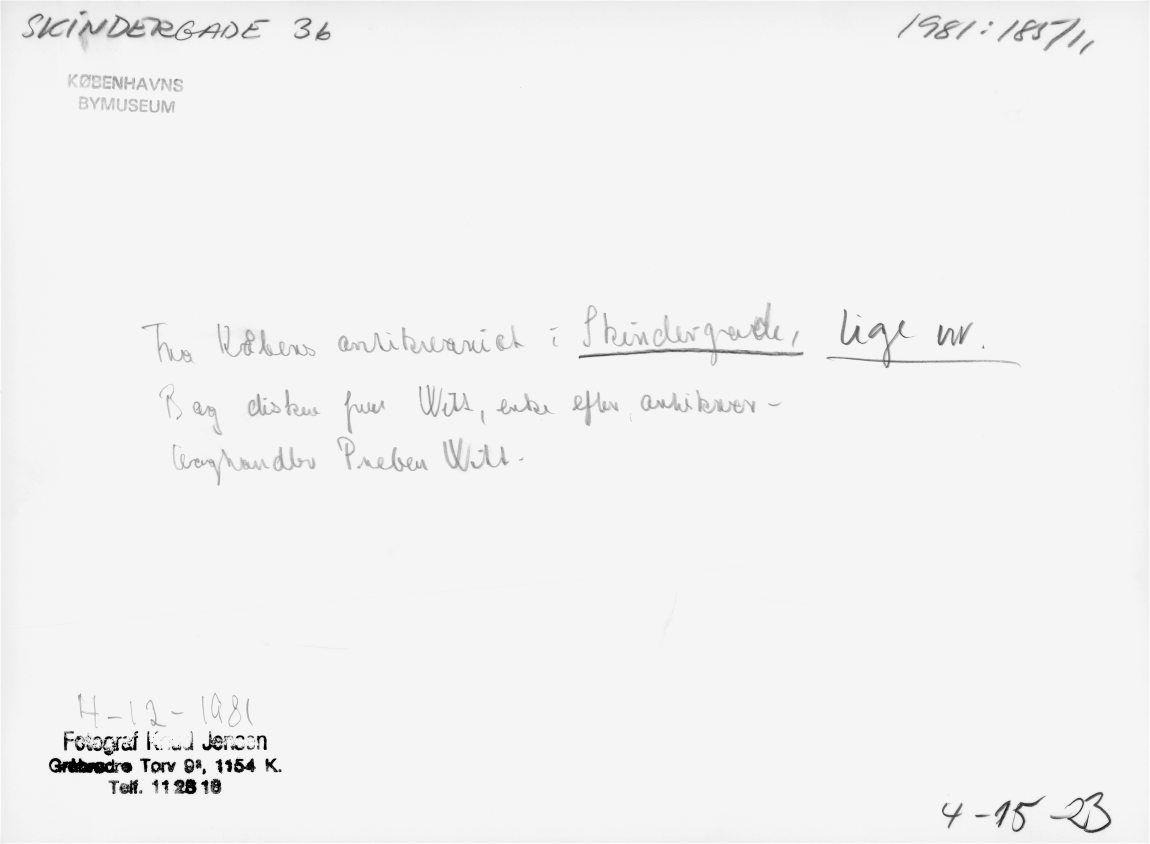 SKINDERGADE 36
1981:185/11
KØBENHAVNS
BYMUSEUM
Fra Købens antikvariat i Skindergade, lige nr.
Bag disken fru Witt, enke efter antikvar-
boghandler Preben Witt.
4-12-1981
Fotograf Knud Jensen
Gråbrødre Torv 9³, 1154 K.
Telf. 11 28 18
4-15-23